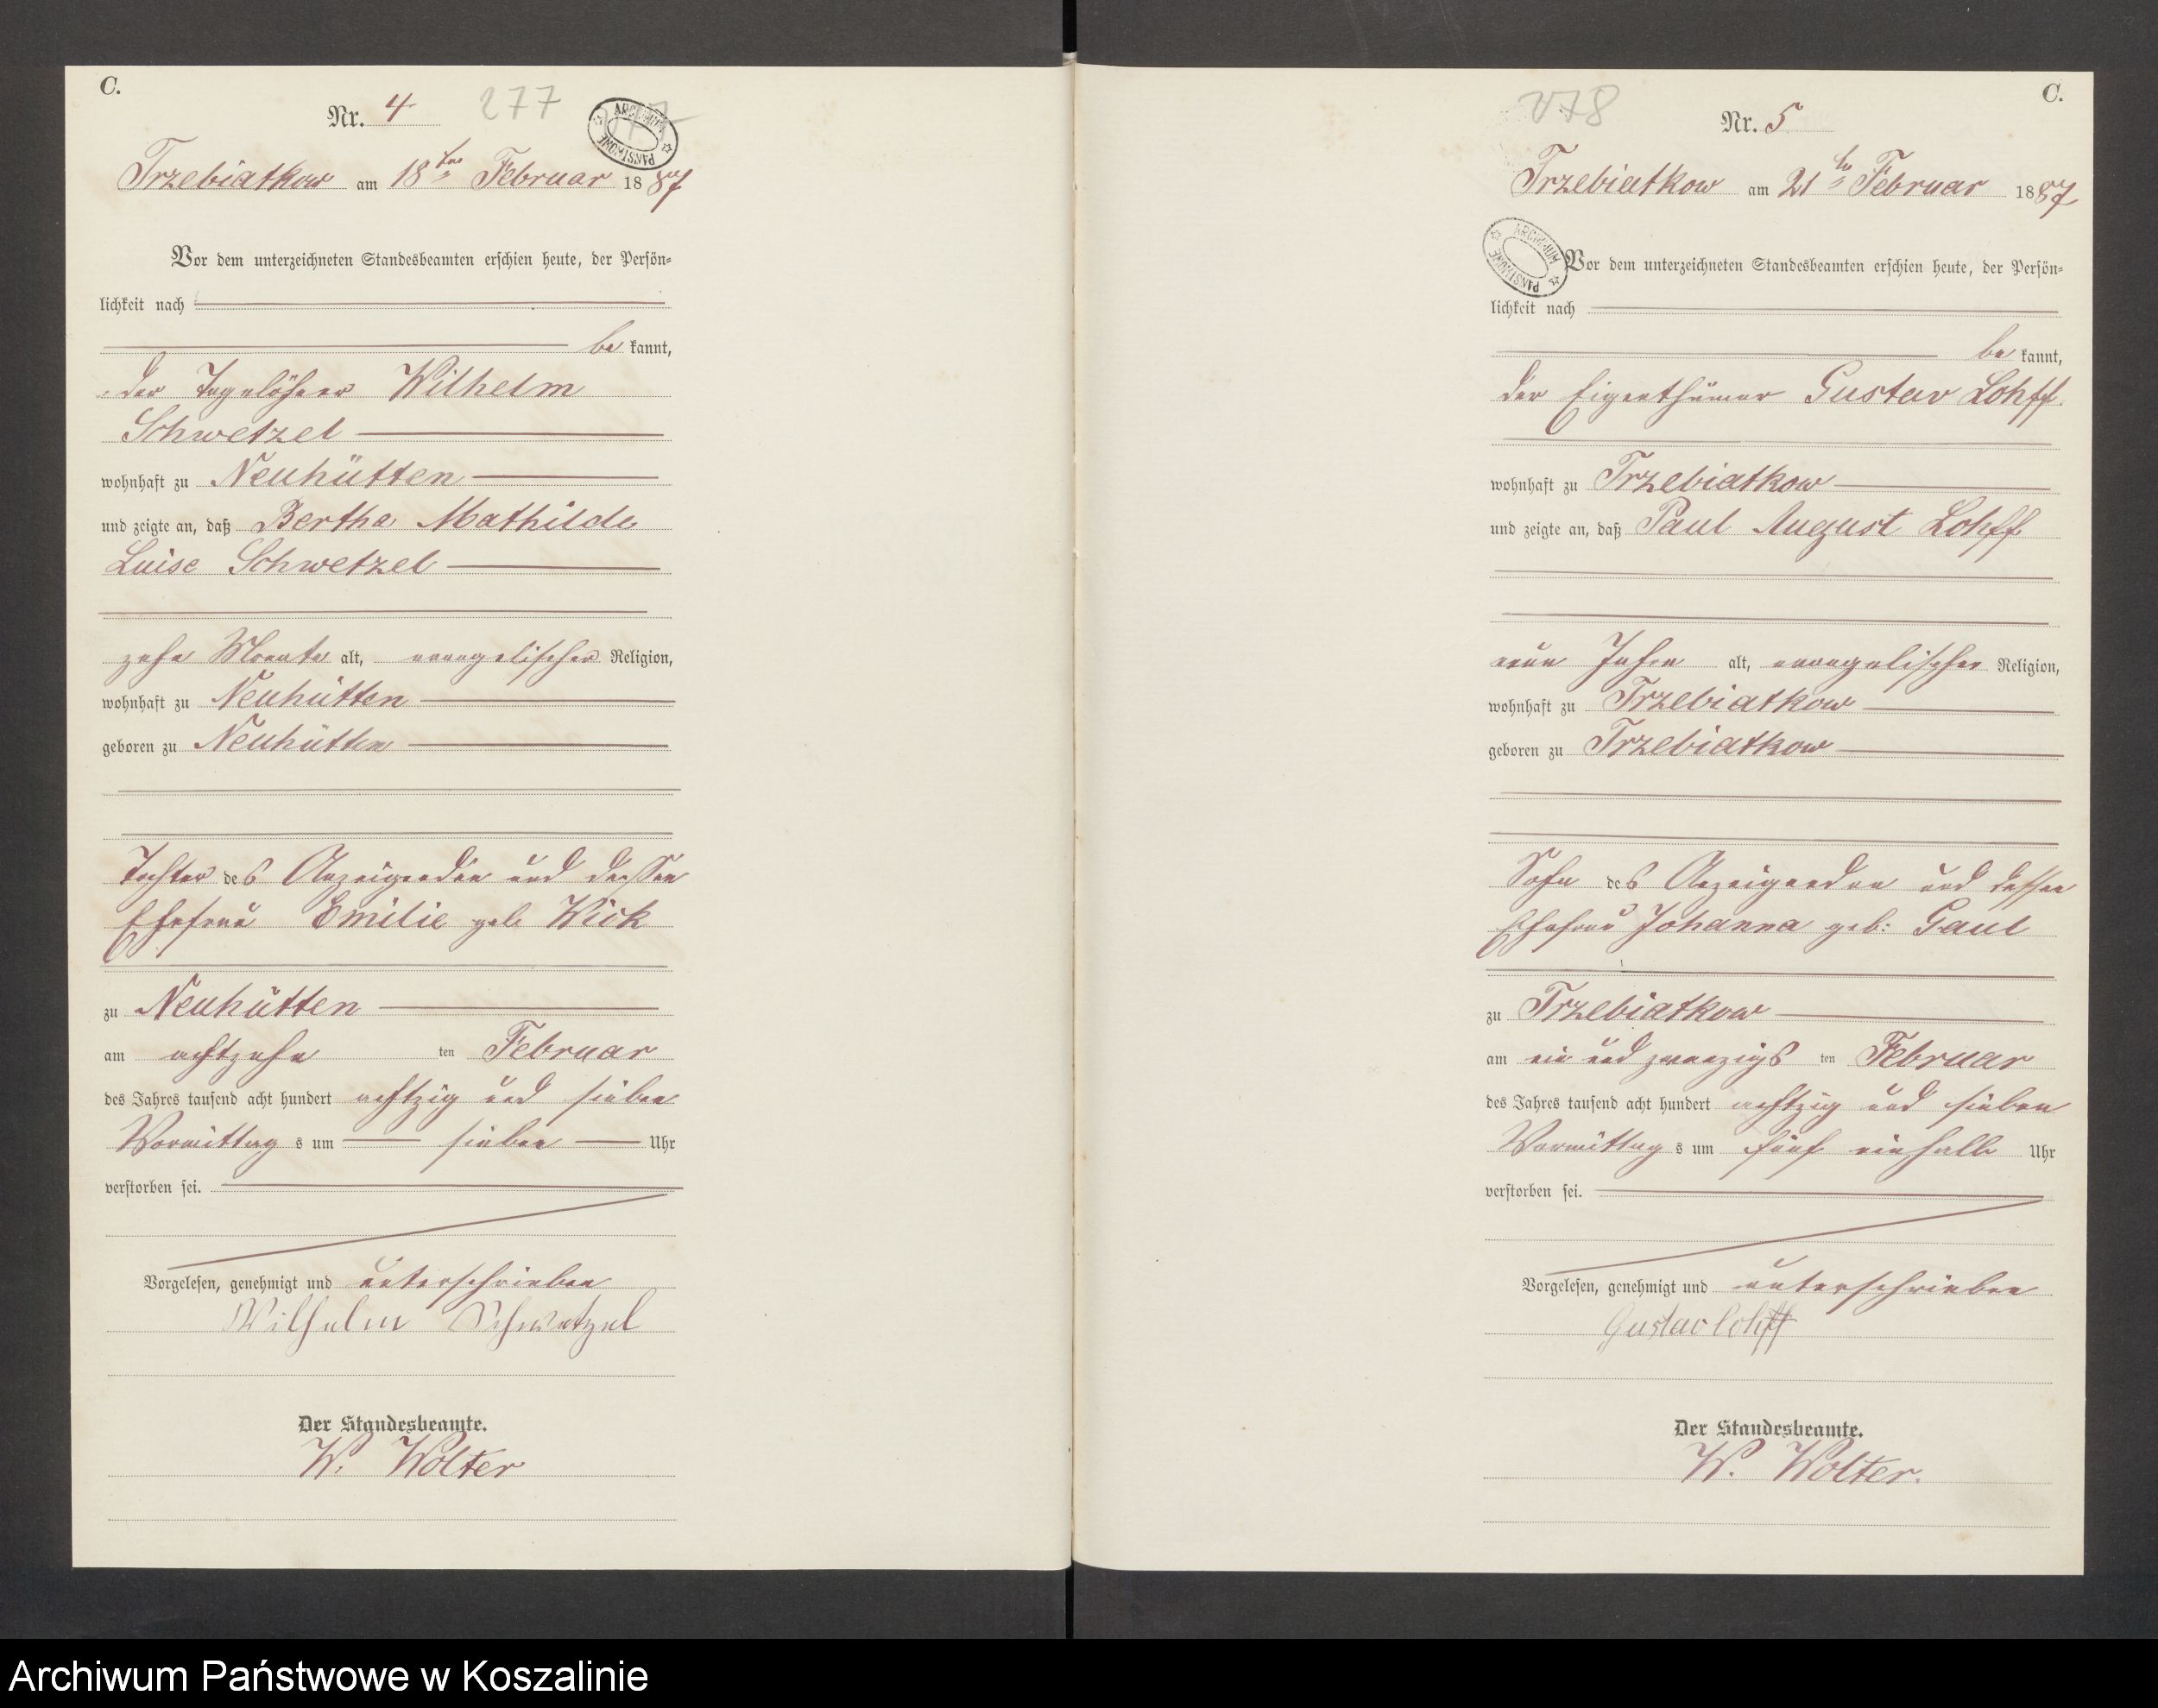 C.
Nr. 4
277
ARCHIWUM PAŃSTWOWE
Trzebiatkow am 18ten Februar 1887
Vor dem unterzeichneten Standesbeamten erschien heute, der Persön-
lichkeit nach
be kannt,
der Tagelöhner Wilhelm
Schwetzel
wohnhaft zu Neuhütten
und zeigte an, daß Bertha Mathilde
Luise Schwetzel
zehn Monate alt, evangelischer Religion,
wohnhaft zu Neuhütten
geboren zu Neuhütten
Tochter des Anzeigenden und dessen
Ehefrau Emilie geb Wick
zu Neuhütten
am achtzehn ten Februar
des Jahres tausend acht hundert achtzig und sieben
Vormittag s um sieben Uhr
verstorben sei.
Vorgelesen, genehmigt und unterschrieben
Wilhelm Schwetzel
Der Standesbeamte.
W. Wolter
C.
278
Nr. 5
Trzebiatkow am 21ten Februar 1887
ARCHIWUM PAŃSTWOWE
Vor dem unterzeichneten Standesbeamten erschien heute, der Persön-
lichkeit nach
be kannt,
der Eigenthümer Gustav Lohff
wohnhaft zu Trzebiatkow
und zeigte an, daß Paul August Lohff
neun Jahre alt, evangelischer Religion,
wohnhaft zu Trzebiatkow
geboren zu Trzebiatkow
Sohn des Anzeigenden und dessen
Ehefrau Johanna geb: Gaul
zu Trzebiatkow
am ein und zwanzigs ten Februar
des Jahres tausend acht hundert achtzig und sieben
Vormittag s um fünf einhalb Uhr
verstorben sei.
Vorgelesen, genehmigt und unterschrieben
Gustav Lohff
Der Standesbeamte.
W. Wolter.
Archiwum Państwowe w Koszalinie